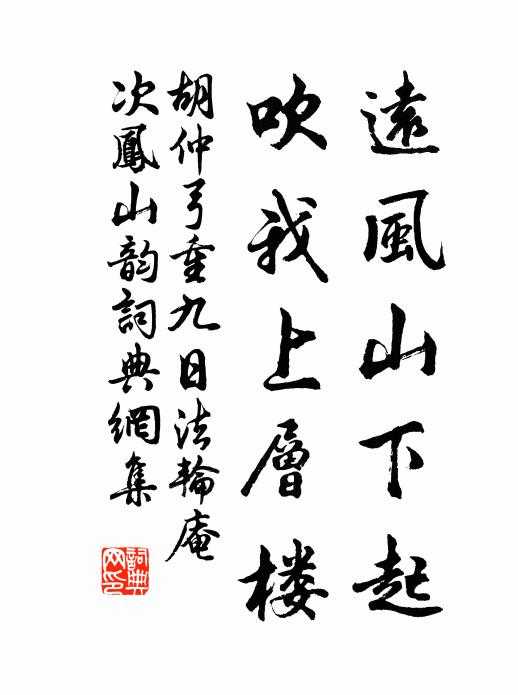 遠風山下起
吹我上層楼
胡仲弓重九日法輪庵
次鳳山韵詞典網集
詞典
网印